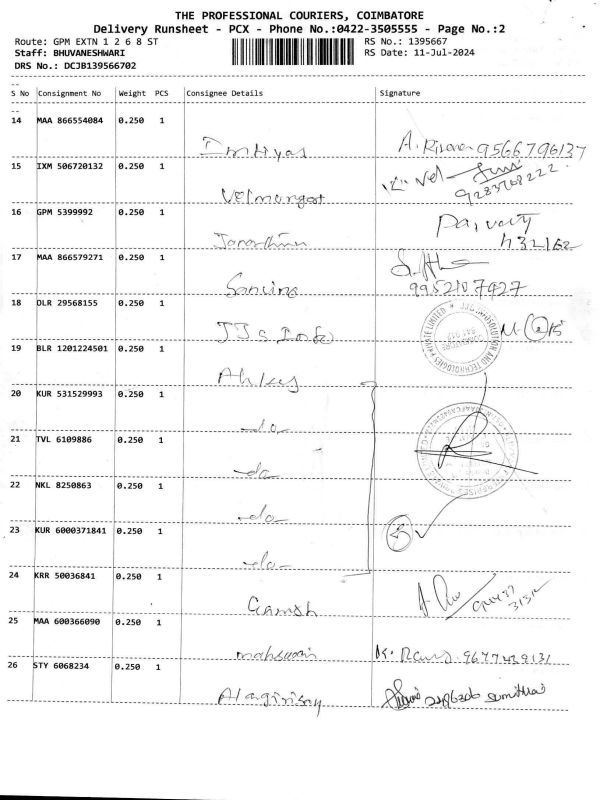 THE PROFESSIONAL COURIERS, COIMBATORE
Delivery Runsheet - PCX - Phone No.:0422-3505555 - Page No.:2
Route: GPM EXTN 1 2 6 8 ST RS No.: 1395667
Staff: BHUVANESHWARI RS Date: 11-Jul-2024
DRS No.: DCJB139566702
S No Consignment No Weight PCS Consignee Details Signature
14 MAA 866554084 0.250 1
Imtiyas 9566796137
15 IXM 506720132 0.250 1
Velmurugan
16 GPM 5399992 0.250 1
17 MAA 866579271 0.250 1
9952107427
18 DLR 29568155 0.250 1
JJs Info
19 BLR 1201224501 0.250 1
20 KUR 531529993 0.250 1
-do-
21 TVL 6109886 0.250 1
-do-
22 NKL 8250863 0.250 1
-do-
23 KUR 6000371841 0.250 1
-do-
24 KRR 50036841 0.250 1
Ganesh
25 MAA 600366090 0.250 1
26 STY 6068234 0.250 1